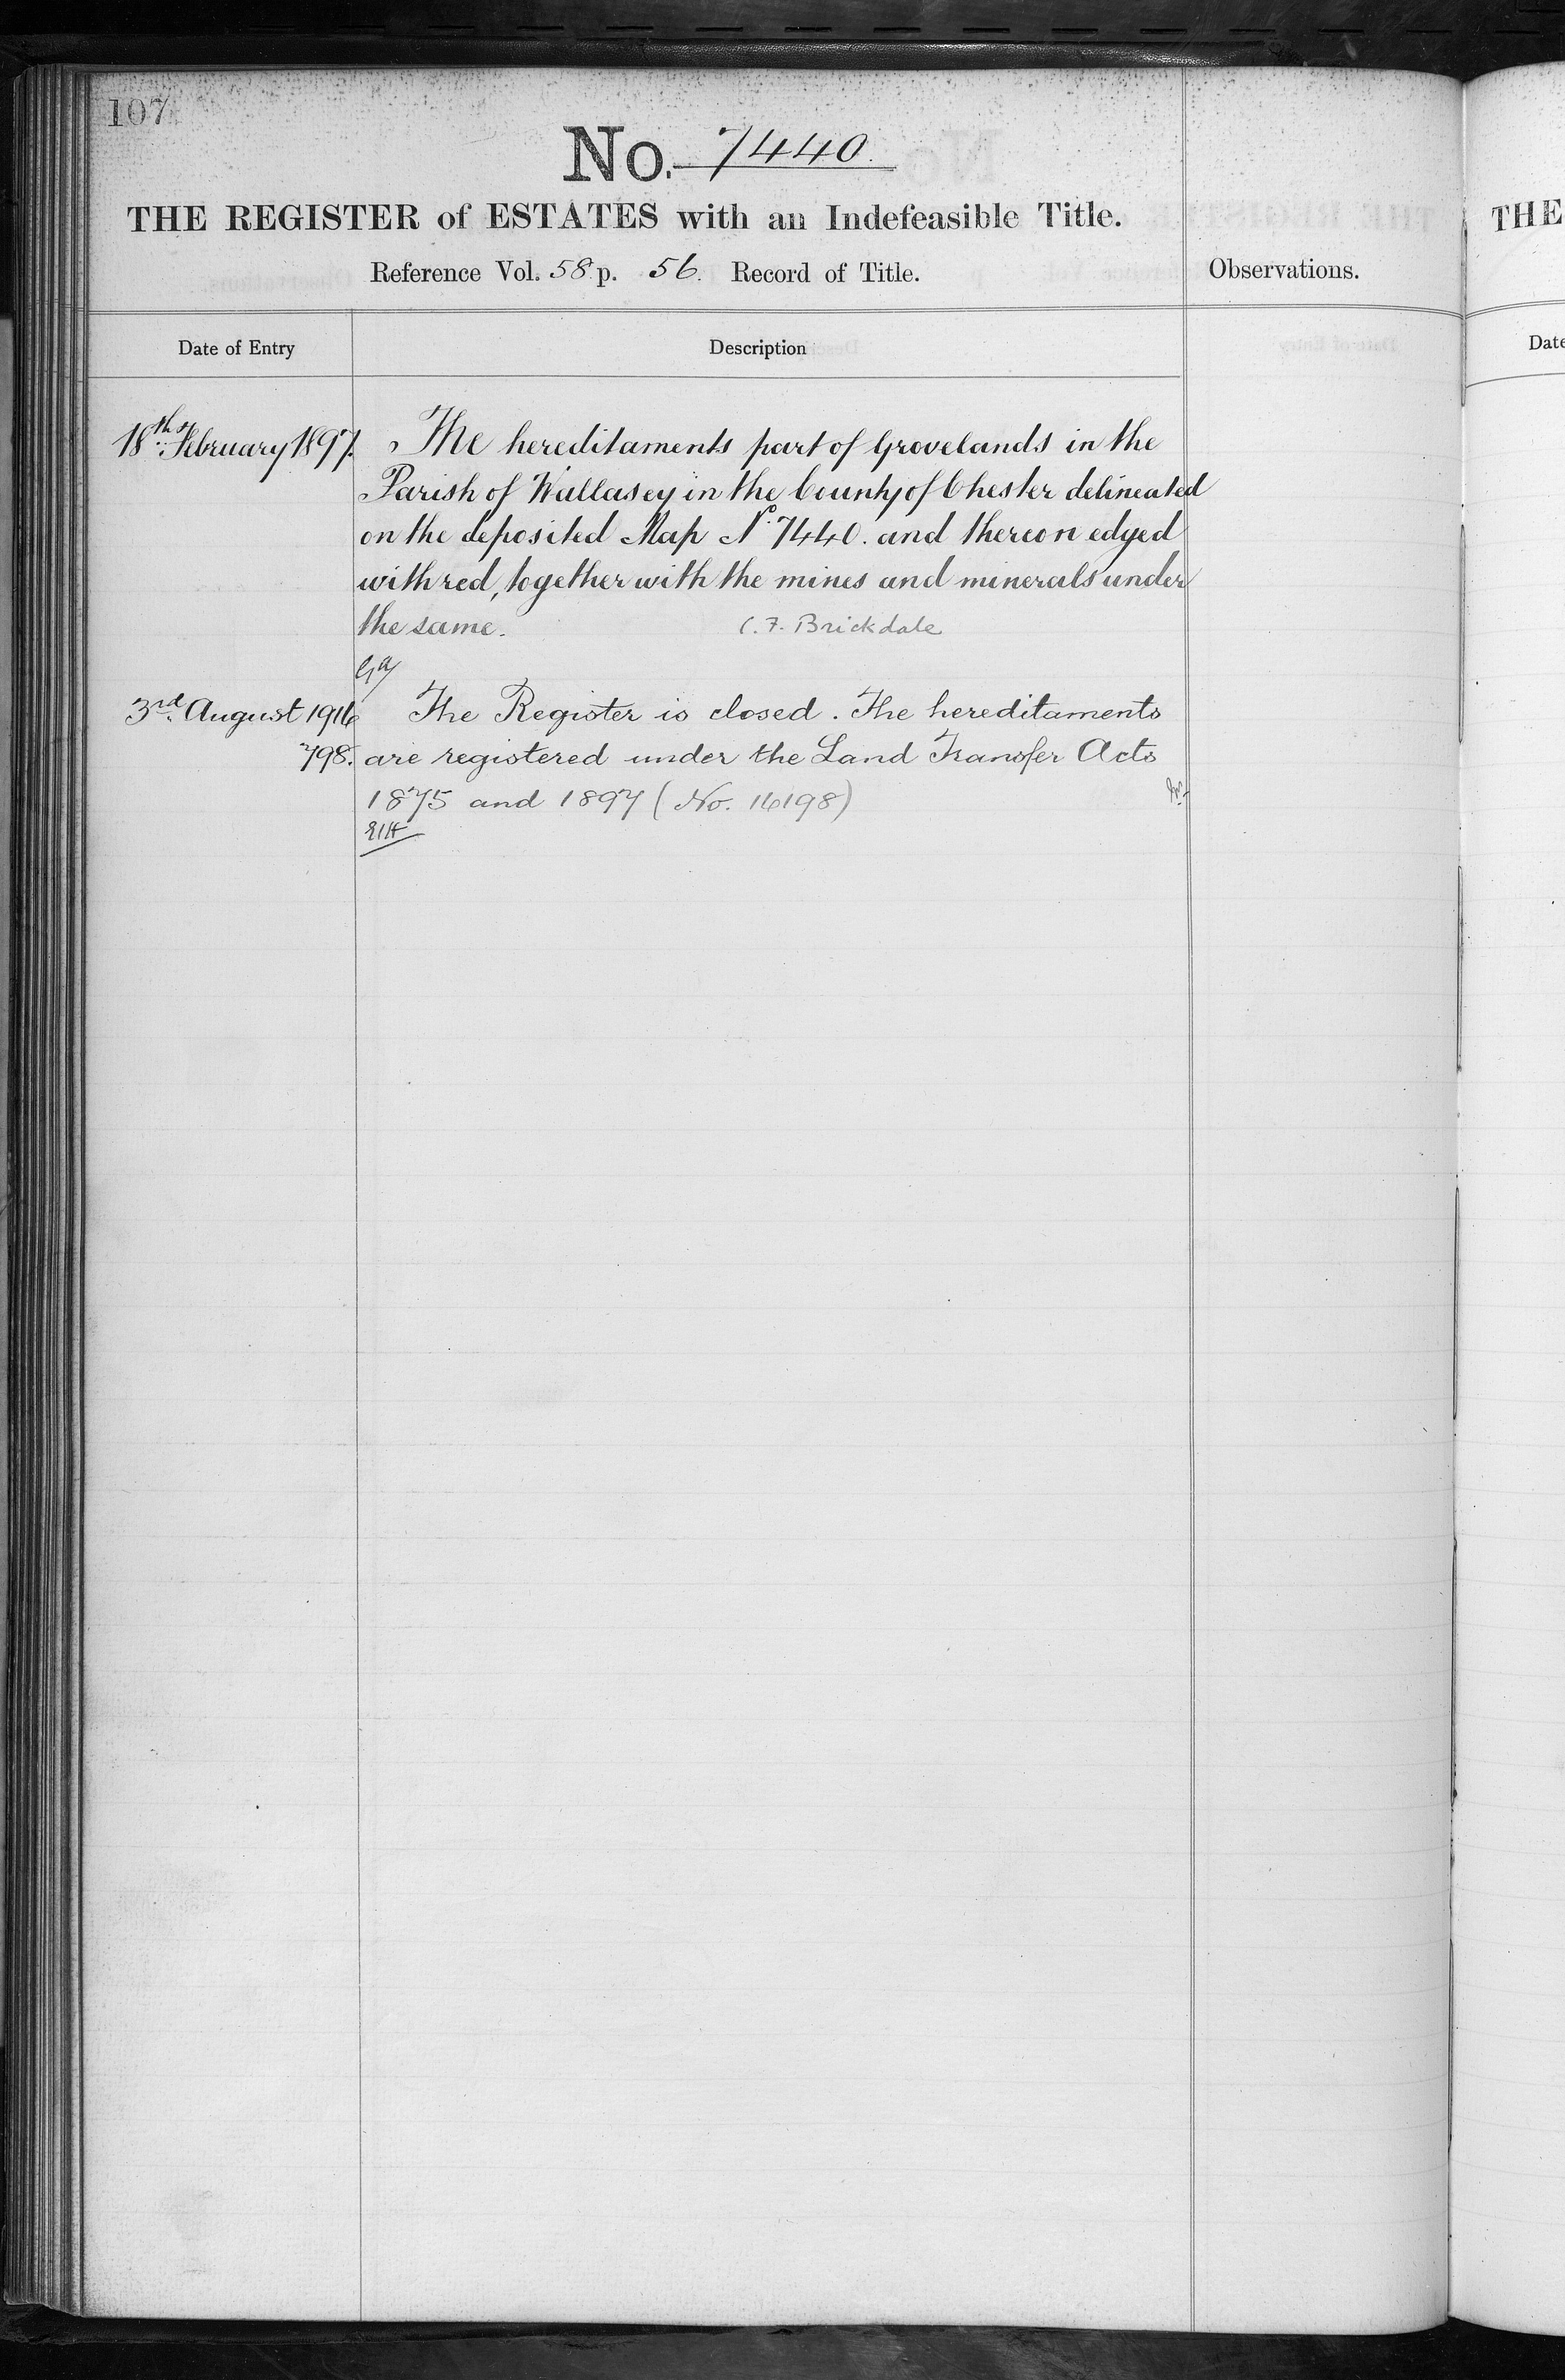 107
No. 7440.
THE REGISTER of ESTATES with an Indefeasible Title.
Reference Vol. 58 p. 56. Record of Title.
Observations.
Date of Entry
Description
18th February 1897.
The hereditaments part of Grovelands in the
Parish of Wallasey in the County of Chester delineated
on the deposited Map No. 7440. and thereon edged
with red, together with the mines and minerals under
the same. C. F. Brickdale
3rd August 1916
798.
The Register is closed. The hereditaments
are registered under the Land Transfer Acts
1875 and 1897 (No. 16198)
THE
Date